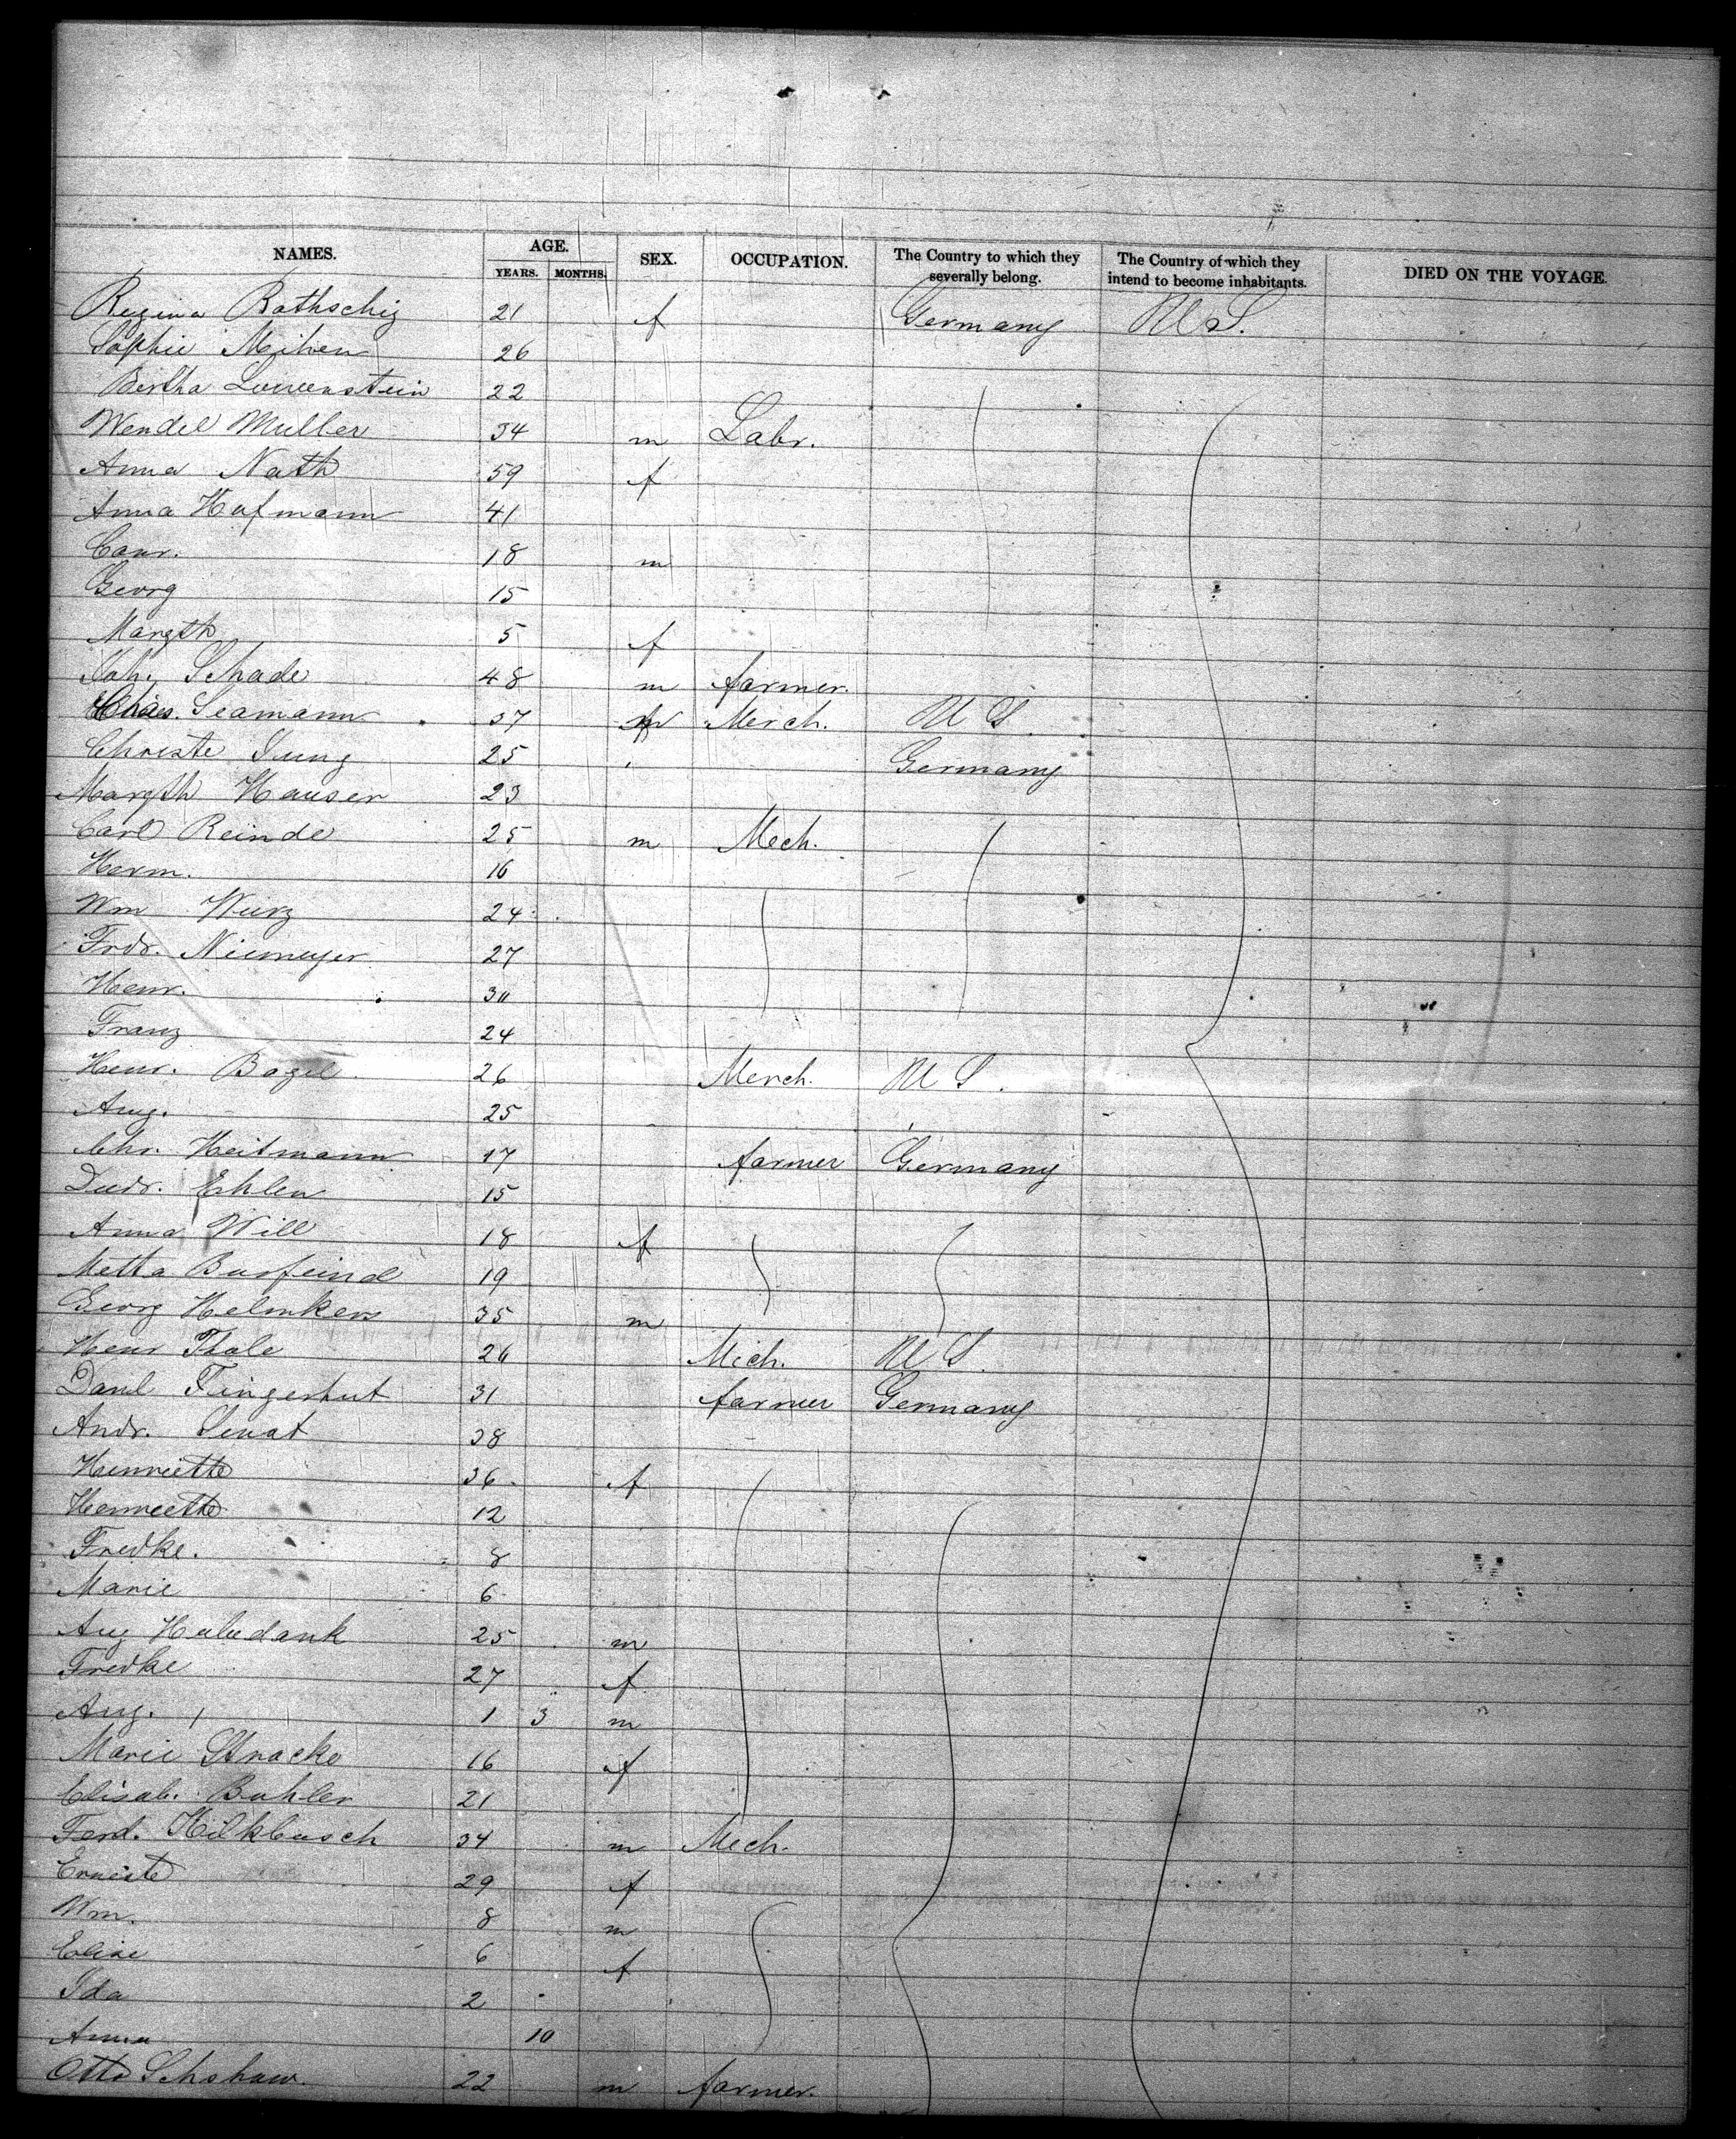 NAMES. AGE. YEARS. MONTHS. SEX. OCCUPATION. The Country to which they severally belong. The Country of which they intend to become inhabitants. DIED ON THE VOYAGE.
Regina Rothschig 21 f Germany U S.
Sophie Meihen 26
Bertha Louvenstein 22
Wendel Muller 34 m Labr.
Anna Nath 59 f
Anna Hofmann 41
Conr. 18 m
Georg 15
Margth 5 f
Joh. Schade 48 m farmer.
Chas. Seamann 37 Merch. U S.
Christe Jung 25 Germany
Margth Hauser 23
Carl Reinde 25 m Mech.
Herm. 16
Wm Wurz 24
Frdr. Niemeyer 27
Henr. 30
Franz 24
Henr. Bagel 26 Merch. U S.
Aug. 25
Chr. Heitmann 17 farmer Germany
Diedr. Ehlen 15
Anna Will 18 f
Metta Burfeind 19
Georg Helmkens 35 m
Henr Thole 26 Mech. U S.
Danl Fingerhut 31 farmer Germany
Andr. Senat 38
Henriette 36 f
Henriette 12
Fredke. 8
Marie 6
Aug Habedank 25 m
Fredke 27 f
Aug. 1 3 m
Marie Stracke 16 f
Elisab. Buhler 21
Ferd. Hilkbusch 34 m Mech.
Erneste 29 f
Wm. 8 m
Elise 6 f
Ida 2
Anna 10
Otto Schshaw. 22 m farmer.